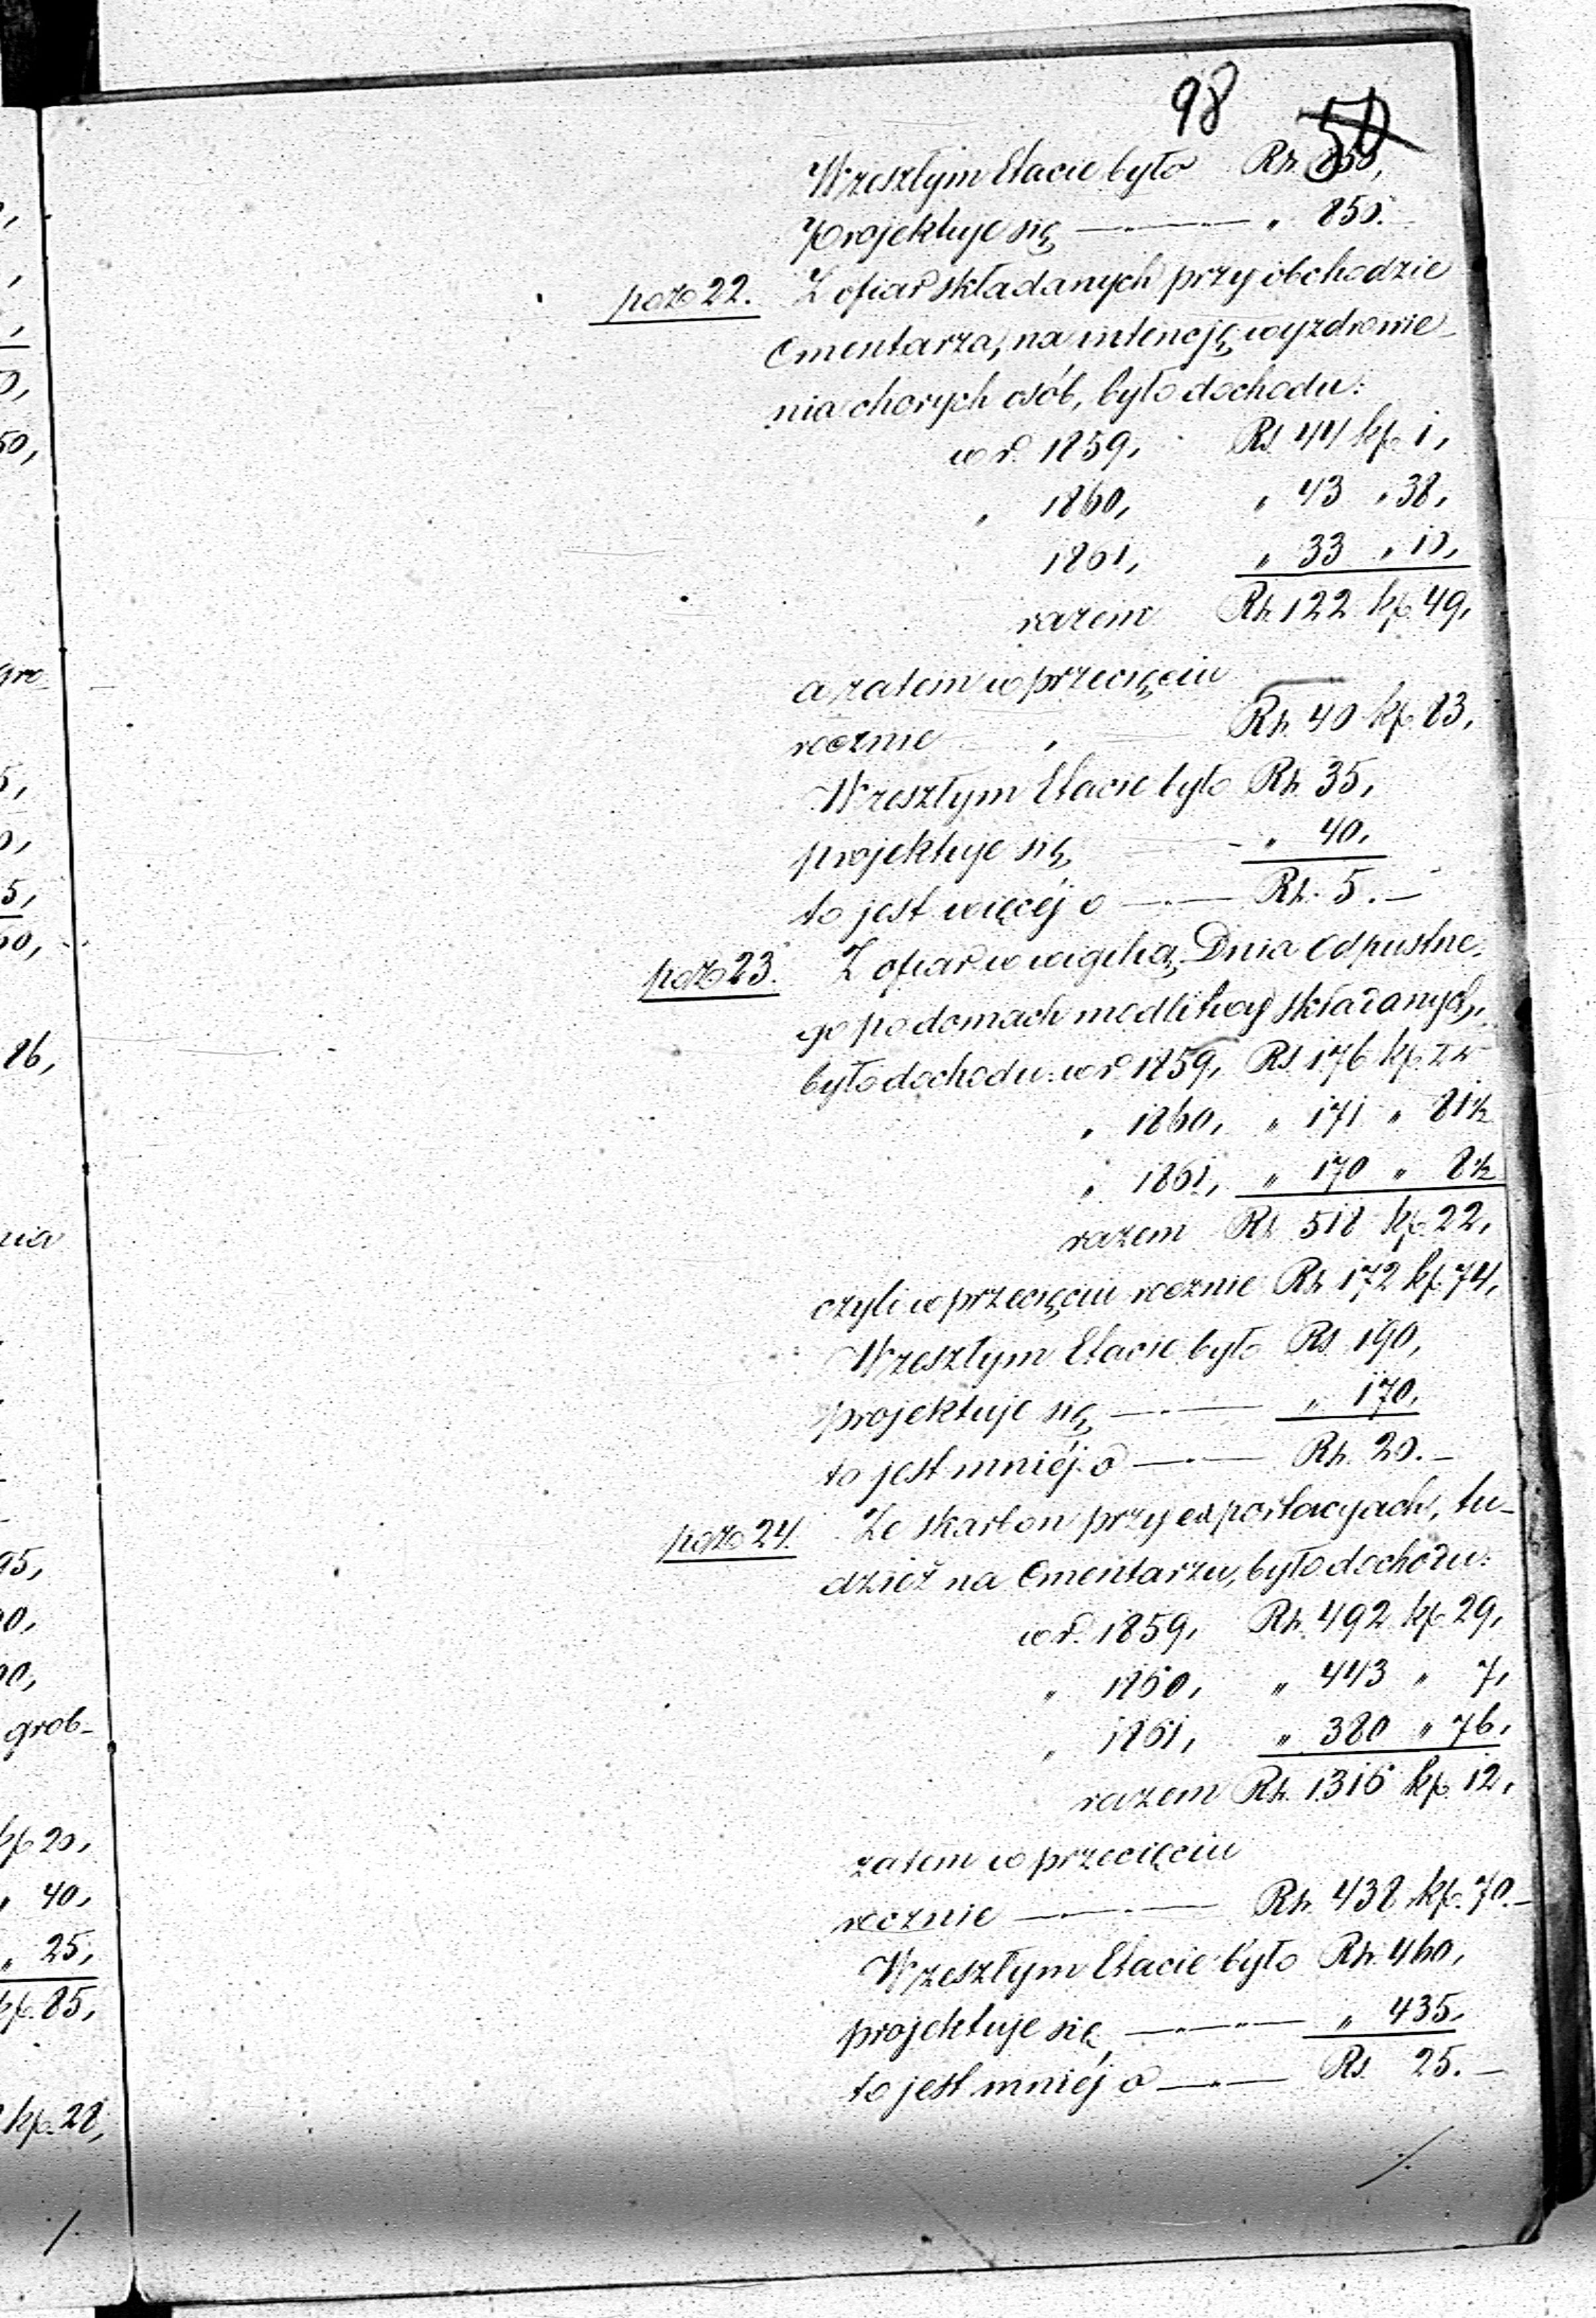 98 50
W zeszłym Etacie było Rs. 850,
Projektuje się — " 850.—
poz 22. Z ofiar składanych przy obchodzie
Cmentarza, na intencję wyzdrowie-
nia chorych osób, było dochodu:
w r. 1859, Rs. 44 kp. 1,
" 1860, " 43 " 38,
1861, " 33 " 10,
razem Rs. 122 kp. 49,
a zatem w przecięciu
rocznie " Rs. 40 kp. 83,
W zeszłym Etacie było Rs. 35,
projektuje się — " 40,
to jest więcéj o — Rs. 5.—
poz 23. Z ofiar w wigilią Dnia Odpustne-
go po domach modlitwy składanych,
było dochodu: w r. 1859, Rs. 176 kp.
" 1860, " 171 " 81½
" 1861, " 170 " 8½
razem Rs. 518 kp. 22,
czyli w przecięciu rocznie Rs. 172 kp. 74,
W zeszłym Etacie było Rs. 190,
projektuje się — " 170,
to jest mniéj o — Rs. 20.—
poz 24. Ze skarbon przy exportacyach, tu-
dzież na Cmentarzu, było dochodu:
w r. 1859, Rs. 492 kp. 29,
" 1860, " 443 " 7,
" 1861, " 380 " 76,
razem Rs. 1316 kp. 12,
zatem w przecięciu
rocznie — Rs. 438 kp. 70.—
W zeszłym Etacie było Rs. 460,
projektuje się — " 435,
to jest mniéj o — Rs. 25.—